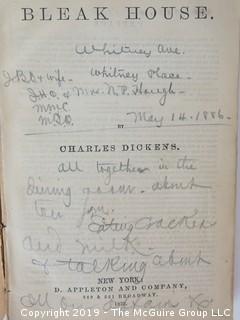 BLEAK HOUSE.
Whitney Ave.
J.B.D & wife - Whitney Place -
J.H.D. & Mrs. N.P. Hough -
BY
May 14. 1886.
CHARLES DICKENS.
all together in the
dining room. about
ten
cracker
and milk
& talking about
NEW YORK:
D. APPLETON AND COMPANY,
549 & 551 BROADWAY.
All
Copyright 2019 - The McGuire Group LLC